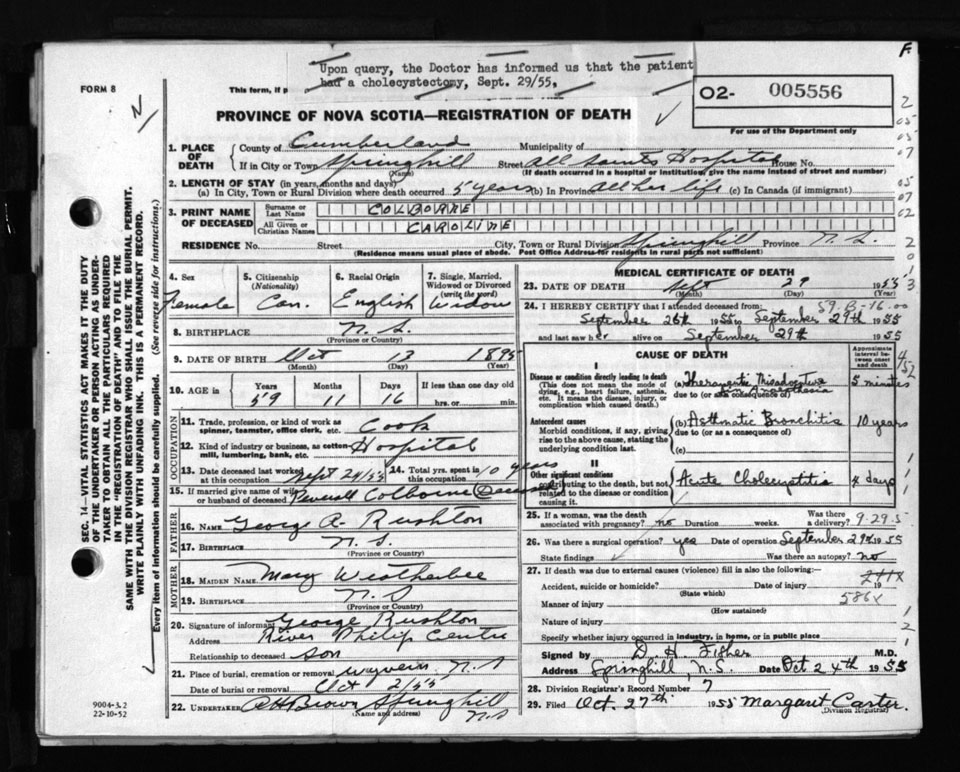 F
Upon query, the Doctor has informed us that the patient
had a cholecystectomy, Sept. 29/55.
FORM 8
This form, if p
N
O2- 005556
For use of the Department only
PROVINCE OF NOVA SCOTIA—REGISTRATION OF DEATH
1. PLACE OF DEATH
County of Cumberland Municipality of
If in City or Town Springhill Street All Saints Hospital House No.
(Name) (If death occurred in a hospital or institution, give the name instead of street and number)
2. LENGTH OF STAY (in years, months and days)
(a) In City, Town or Rural Division where death occurred 5 years (b) In Province all her life (c) In Canada (if immigrant)
3. PRINT NAME OF DECEASED
Surname or Last Name COLBORNE
All Given or Christian Names CAROLINE
RESIDENCE No. Street City, Town or Rural Division Springhill Province N.S.
(Residence means usual place of abode. Post Office Address for residents in rural parts not sufficient)
4. Sex
Female
5. Citizenship (Nationality)
Can.
6. Racial Origin
English
7. Single, Married, Widowed or Divorced (write the word)
Widow
8. BIRTHPLACE N.S.
(Province or Country)
9. DATE OF BIRTH Oct 13 1895
(Month) (Day) (Year)
10. AGE in
Years Months Days If less than one day old
59 11 16 hrs. or min.
OCCUPATION
11. Trade, profession, or kind of work as spinner, teamster, office clerk, etc. Cook
12. Kind of industry or business, as cotten-mill, lumbering, bank, etc. Hospital
13. Date deceased last worked at this occupation Sept 24/55
14. Total yrs. spent in this occupation 10 years
15. If married give name of wife or husband of deceased Colborne
FATHER
16. NAME George A. Rushton
17. BIRTHPLACE N.S.
(Province or Country)
MOTHER
18. MAIDEN NAME Mary Weatherbee
19. BIRTHPLACE N.S
(Province or Country)
20. Signature of informant George Rushton
Address River Philip Centre
Relationship to deceased son
21. Place of burial, cremation or removal N.S
Date of burial or removal Oct 2/55
22. UNDERTAKER Brown Springhill N.S
(Name and address)
MEDICAL CERTIFICATE OF DEATH
23. DATE OF DEATH Sept 29 1955
(Month) (Day) (Year)
24. I HEREBY CERTIFY that I attended deceased from:
September 26th 1955 to September 29th 1955
and last saw her alive on September 29th 1955
CAUSE OF DEATH
Approximate interval between onset and death
I
Disease or condition directly leading to death
(This does not mean the mode of dying, e.g., heart failure, asthenia, etc. It means the disease, injury, or complication which caused death.)
(a) Therapeutic Misadventure in Anaesthesia 5 minutes
due to (or as a consequence of)
Antecedent causes
Morbid conditions, if any, giving rise to the above cause, stating the underlying condition last.
(b) Asthmatic Bronchitis 10 years
due to (or as a consequence of)
(c)
II
Other significant conditions contributing to the death, but not related to the disease or condition causing it.
Acute Cholecystitis 4 days
25. If a woman, was the death associated with pregnancy? no Duration weeks. Was there a delivery? 9-29-5
26. Was there a surgical operation? yes Date of operation September 29th 1955
State findings Was there an autopsy? no
27. If death was due to external causes (violence) fill in also the following:—
Accident, suicide or homicide? Date of injury 19
(State which)
586x
Manner of injury
(How sustained)
Nature of injury
Specify whether injury occurred in industry, in home, or in public place
Signed by D. H. Fisher M.D.
Address Springhill, N.S. Date Oct 24th 1955
28. Division Registrar's Record Number 7
29. Filed Oct. 27th 1955 Margaret Carter.
(Division Registrar)
SEC. 14—VITAL STATISTICS ACT MAKES IT THE DUTY
OF THE UNDERTAKER OR PERSON ACTING AS UNDER-
TAKER TO OBTAIN ALL THE PARTICULARS REQUIRED
IN THE "REGISTRATION OF DEATH" AND TO FILE THE
SAME WITH THE DIVISION REGISTRAR WHO SHALL ISSUE THE BURIAL PERMIT.
WRITE PLAINLY WITH UNFADING INK. THIS IS A PERMANENT RECORD.
Every item of information should be carefully supplied. (See reverse side for instructions.)
9004-3.2
22-10-52